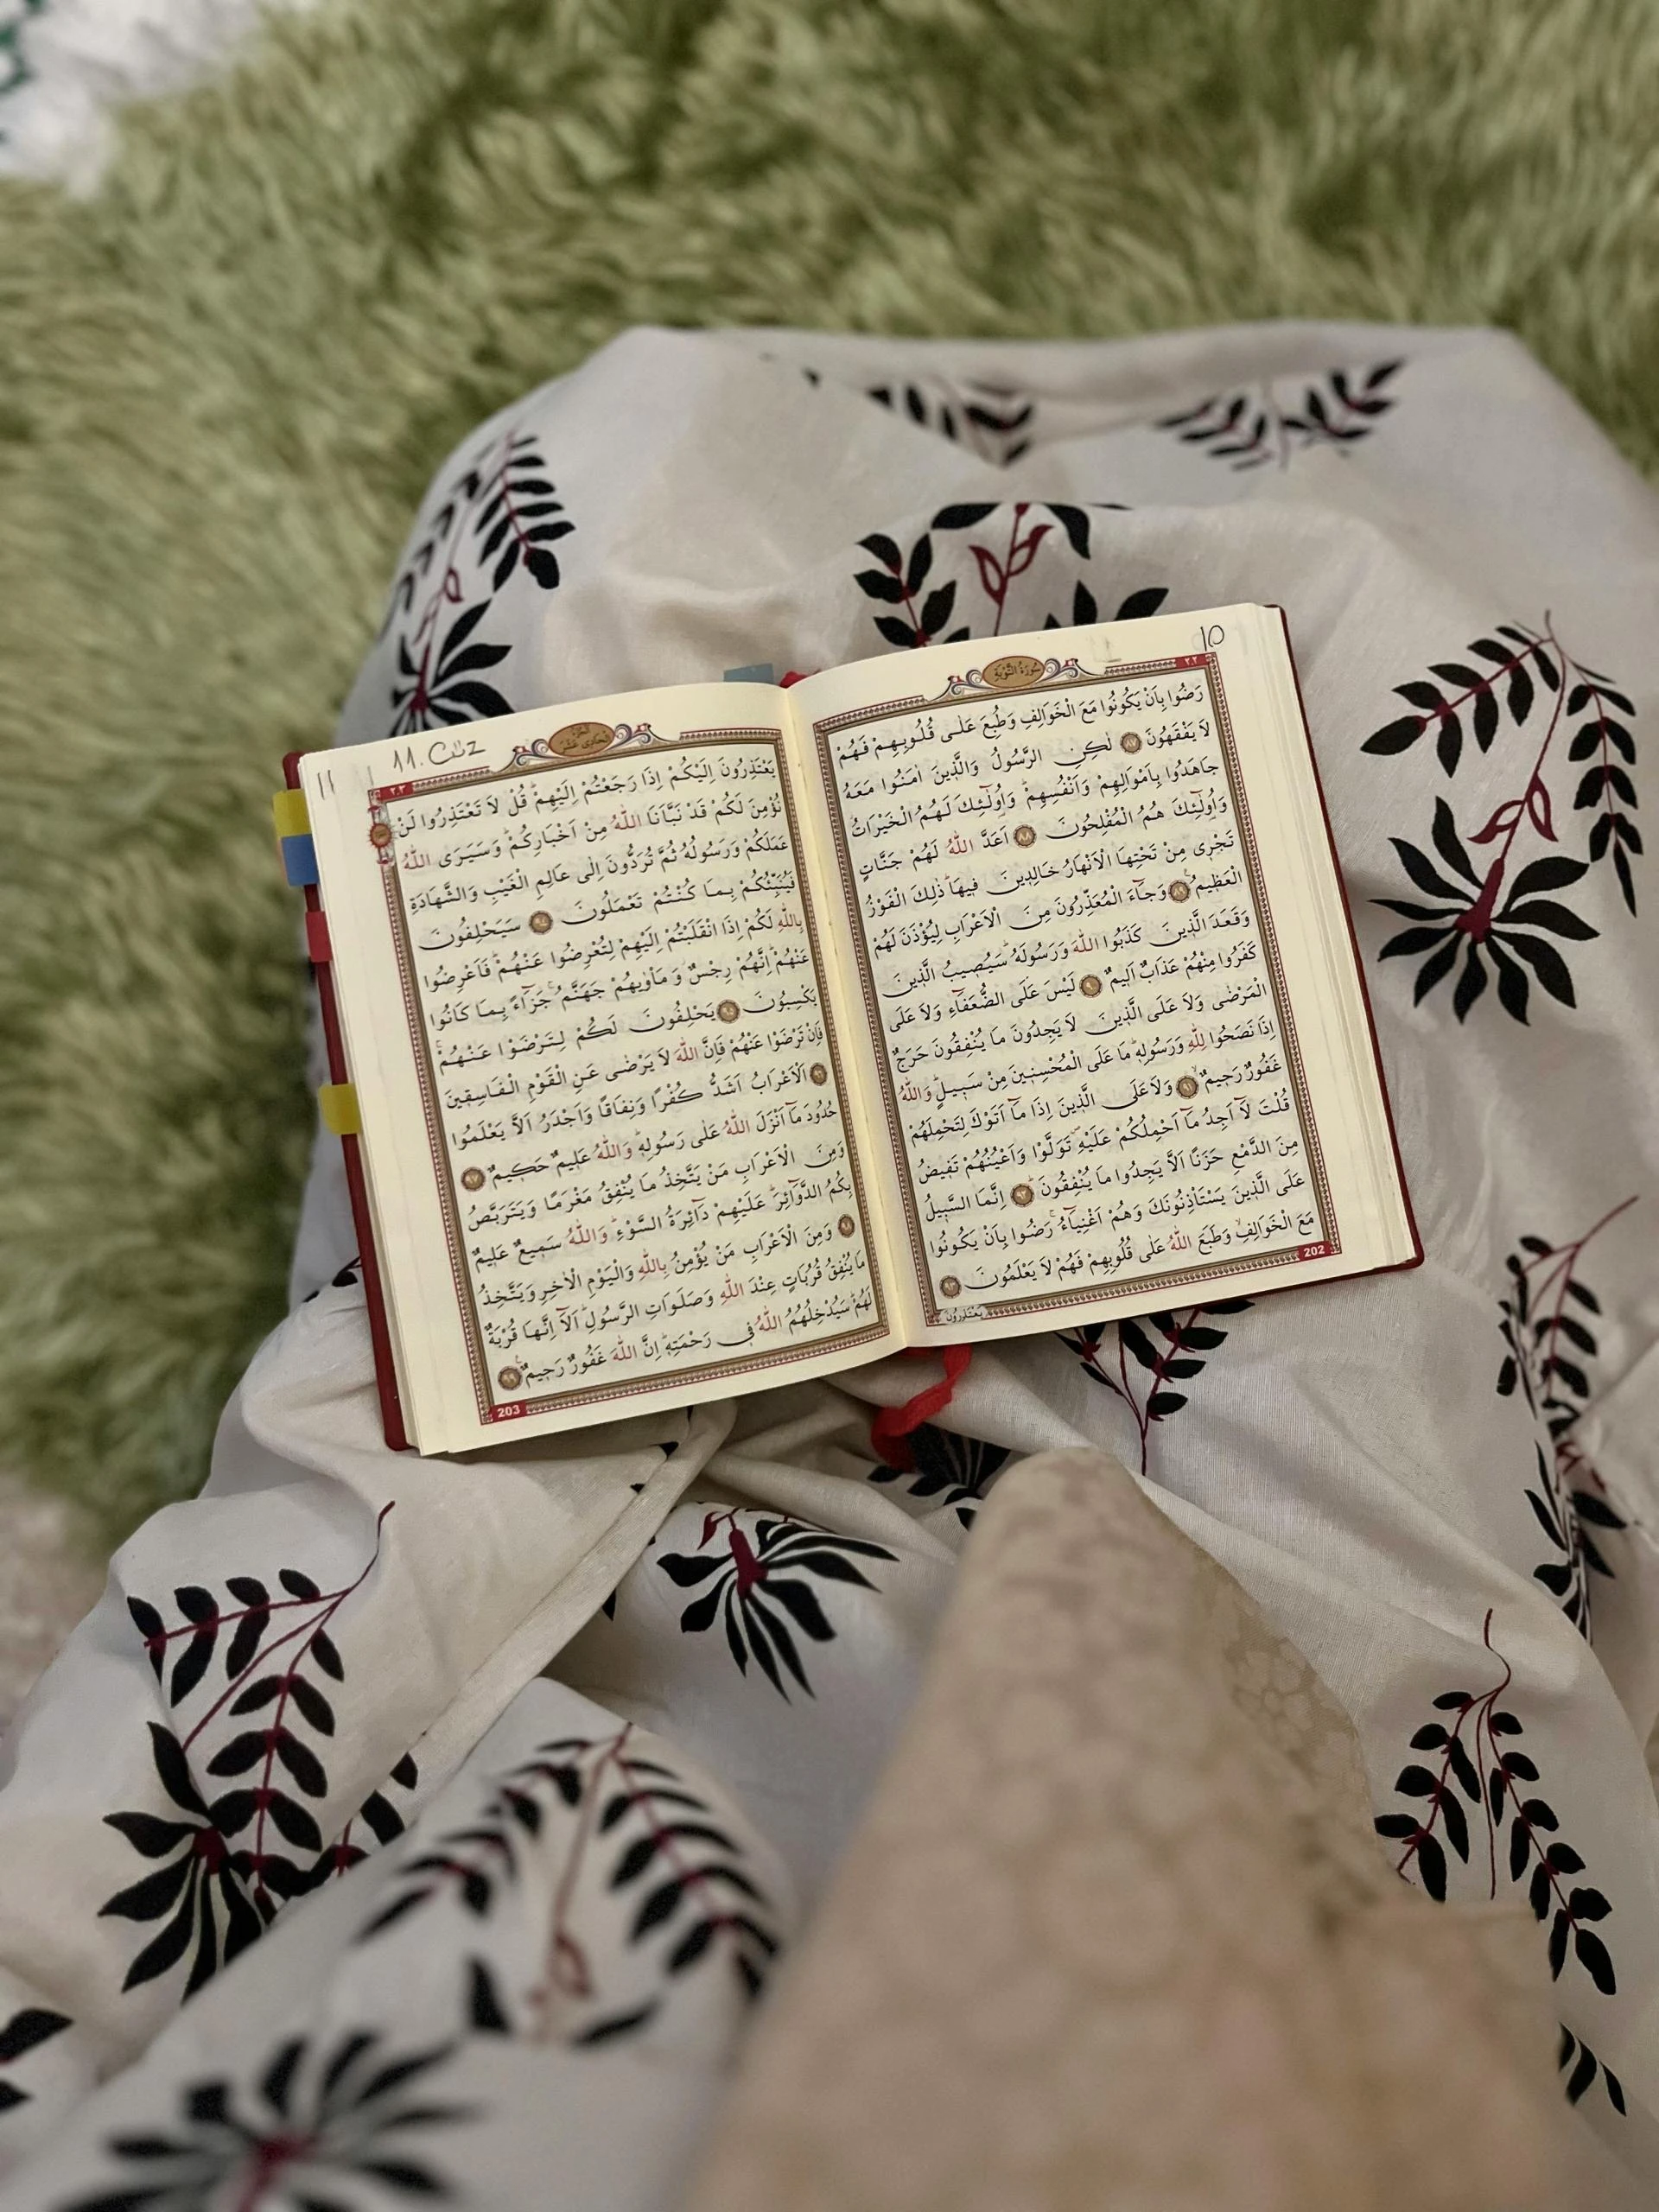 10
٢٠٢
سُورَةُ التَّوْبَةِ
رَضُوا بِاَنْ يَكُونُوا مَعَ الْخَوَالِفِ وَطُبِعَ عَلٰى قُلُوبِهِمْ فَهُمْ
لَا يَفْقَهُونَ ﴿٨٧﴾ لٰكِنِ الرَّسُولُ وَالَّذ۪ينَ اٰمَنُوا مَعَهُ
جَاهَدُوا بِاَمْوَالِهِمْ وَاَنْفُسِهِمْ وَاُو۬لٰٓئِكَ لَهُمُ الْخَيْرَاتُ
وَاُو۬لٰٓئِكَ هُمُ الْمُفْلِحُونَ ﴿٨٨﴾ اَعَدَّ اللّٰهُ لَهُمْ جَنَّاتٍ
تَجْر۪ي مِنْ تَحْتِهَا الْاَنْهَارُ خَالِد۪ينَ ف۪يهَا ذٰلِكَ الْفَوْزُ
الْعَظ۪يمُ ﴿٨٩﴾ وَجَٓاءَ الْمُعَذِّرُونَ مِنَ الْاَعْرَابِ لِيُؤْذَنَ لَهُمْ
وَقَعَدَ الَّذ۪ينَ كَذَبُوا اللّٰهَ وَرَسُولَهُ سَيُص۪يبُ الَّذ۪ينَ
كَفَرُوا مِنْهُمْ عَذَابٌ اَل۪يمٌ ﴿٩٠﴾ لَيْسَ عَلَى الضُّعَفَٓاءِ وَلَا عَلَى
الْمَرْضٰى وَلَا عَلَى الَّذ۪ينَ لَا يَجِدُونَ مَا يُنْفِقُونَ حَرَجٌ
اِذَا نَصَحُوا لِلّٰهِ وَرَسُولِه۪ مَا عَلَى الْمُحْسِن۪ينَ مِنْ سَب۪يلٍ وَاللّٰهُ
غَفُورٌ رَح۪يمٌ ﴿٩١﴾ وَلَا عَلَى الَّذ۪ينَ اِذَا مَٓا اَتَوْكَ لِتَحْمِلَهُمْ
قُلْتَ لَٓا اَجِدُ مَٓا اَحْمِلُكُمْ عَلَيْهِ تَوَلَّوْا وَاَعْيُنُهُمْ تَف۪يضُ
مِنَ الدَّمْعِ حَزَنًا اَلَّا يَجِدُوا مَا يُنْفِقُونَ ﴿٩٢﴾ اِنَّمَا السَّب۪يلُ
عَلَى الَّذ۪ينَ يَسْتَأْذِنُونَكَ وَهُمْ اَغْنِيَٓاءُ رَضُوا بِاَنْ يَكُونُوا
مَعَ الْخَوَالِفِ وَطَبَعَ اللّٰهُ عَلٰى قُلُوبِهِمْ فَهُمْ لَا يَعْلَمُونَ ﴿٩٣﴾
يَعْتَذِرُونَ
202
11
11. Cüz
٢٠٣
الجزء الحادي عشر
يَعْتَذِرُونَ اِلَيْكُمْ اِذَا رَجَعْتُمْ اِلَيْهِمْ قُلْ لَا تَعْتَذِرُوا لَنْ
نُؤْمِنَ لَكُمْ قَدْ نَبَّاَنَا اللّٰهُ مِنْ اَخْبَارِكُمْ وَسَيَرَى اللّٰهُ
عَمَلَكُمْ وَرَسُولُهُ ثُمَّ تُرَدُّونَ اِلٰى عَالِمِ الْغَيْبِ وَالشَّهَادَةِ
فَيُنَبِّئُكُمْ بِمَا كُنْتُمْ تَعْمَلُونَ ﴿٩٤﴾ سَيَحْلِفُونَ
بِاللّٰهِ لَكُمْ اِذَا انْقَلَبْتُمْ اِلَيْهِمْ لِتُعْرِضُوا عَنْهُمْ فَاَعْرِضُوا
عَنْهُمْ اِنَّهُمْ رِجْسٌ وَمَأْوٰيهُمْ جَهَنَّمُ جَزَٓاءً بِمَا كَانُوا
يَكْسِبُونَ ﴿٩٥﴾ يَحْلِفُونَ لَكُمْ لِتَرْضَوْا عَنْهُمْ
فَاِنْ تَرْضَوْا عَنْهُمْ فَاِنَّ اللّٰهَ لَا يَرْضٰى عَنِ الْقَوْمِ الْفَاسِق۪ينَ
﴿٩٦﴾ اَلْاَعْرَابُ اَشَدُّ كُفْرًا وَنِفَاقًا وَاَجْدَرُ اَلَّا يَعْلَمُوا
حُدُودَ مَٓا اَنْزَلَ اللّٰهُ عَلٰى رَسُولِه۪ وَاللّٰهُ عَل۪يمٌ حَك۪يمٌ ﴿٩٧﴾
وَمِنَ الْاَعْرَابِ مَنْ يَتَّخِذُ مَا يُنْفِقُ مَغْرَمًا وَيَتَرَبَّصُ
بِكُمُ الدَّوَٓائِرَ عَلَيْهِمْ دَٓائِرَةُ السَّوْءِ وَاللّٰهُ سَم۪يعٌ عَل۪يمٌ
﴿٩٨﴾ وَمِنَ الْاَعْرَابِ مَنْ يُؤْمِنُ بِاللّٰهِ وَالْيَوْمِ الْاٰخِرِ وَيَتَّخِذُ
مَا يُنْفِقُ قُرُبَاتٍ عِنْدَ اللّٰهِ وَصَلَوَاتِ الرَّسُولِ اَلَٓا اِنَّهَا قُرْبَةٌ
لَهُمْ سَيُدْخِلُهُمُ اللّٰهُ ف۪ي رَحْمَتِه۪ اِنَّ اللّٰهَ غَفُورٌ رَح۪يمٌ ﴿٩٩﴾
203